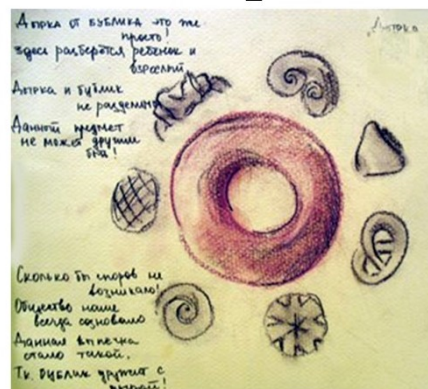 Дырка от бублика это же
просто!
Здесь разберётся ребёнок и
взрослый
Дырка и бублик
не разделимы
Данный предмет
не может другим
быть!
„Дырка
Сколько бы споров не
возникало!
Общество наше
всегда сознавало
Данная выпечка
стало такой,
Т.к. бублик дружит с
дыркой!